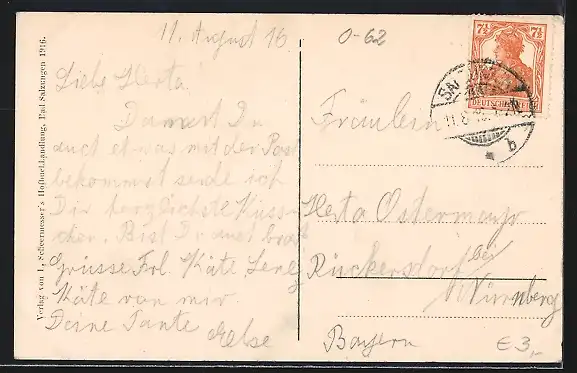 11. August 16
0-62
Liebe Herta.
Damit Du
auch etwas mit der Post
bekommst sende ich
Dir herzlichste Küss-
chen. Bist Du auch brav
Grüsse Frl. Käte, Lene
Käte von mir.
Deine Tante
Else
7½ 7½
DEUTSCHES REICH
11.8.16.
b
Fräulein
Herta Ostermayr
Rückersdorf bei
Nürnberg
Bayern
€3,-
Verlag von L. Scheermesser's Hofbuchhandlung, Bad Salzungen 1916.